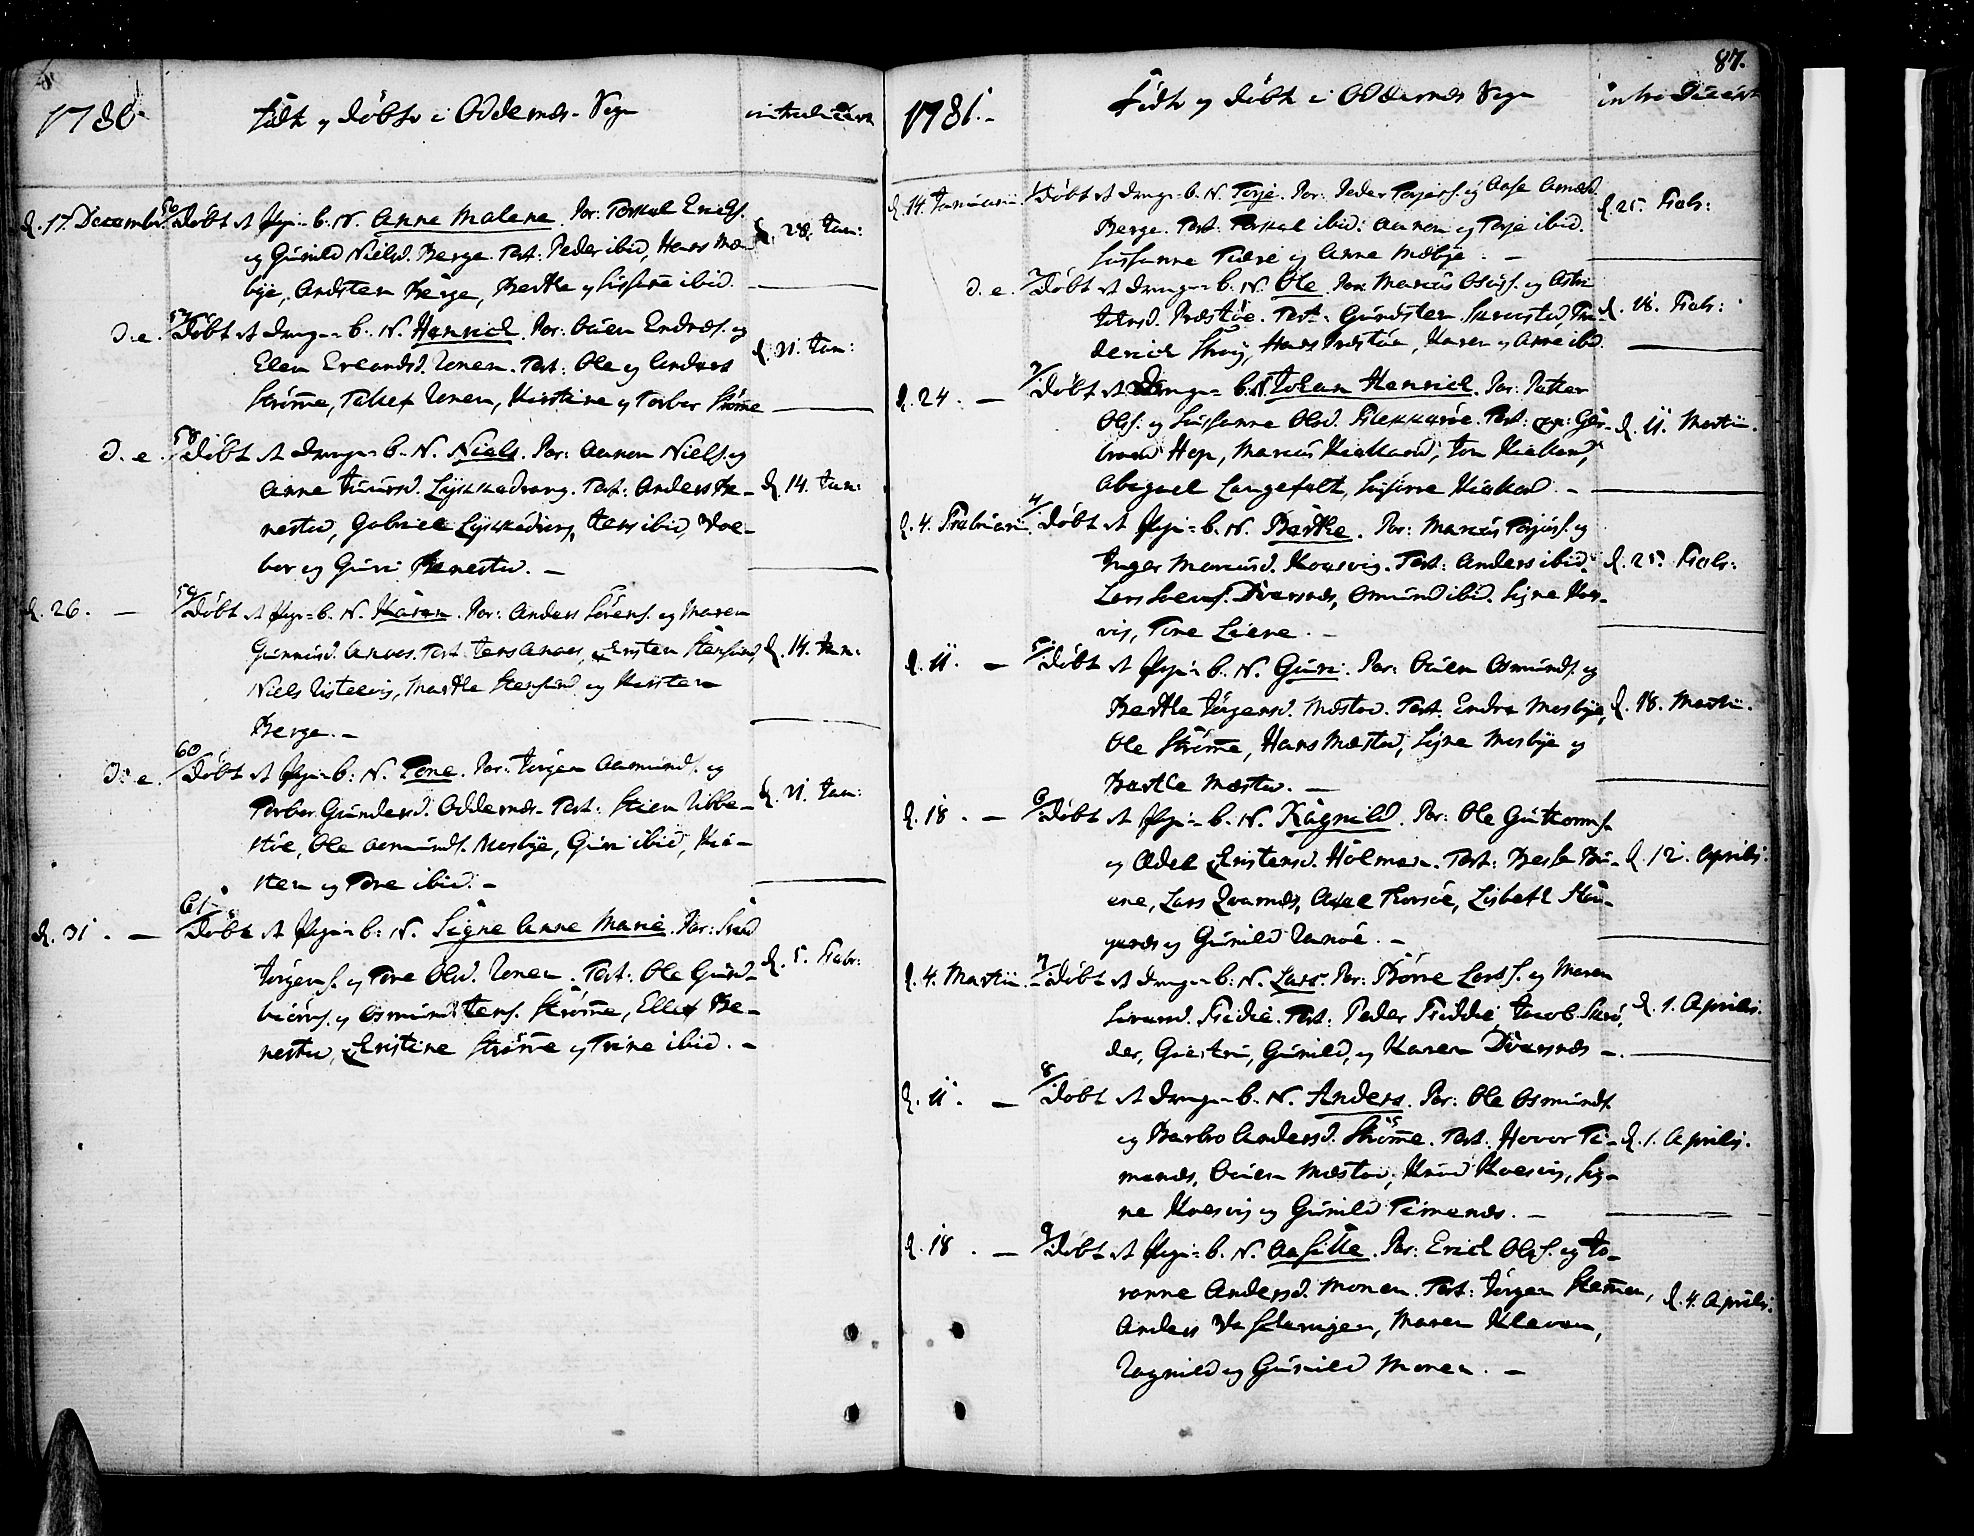 1780.
Födt og döbte i Oddernes-Sogn
introducert
d. 17. Decembr.
56/ Döbt et Pige=b. N. Anne Malene. Par: Torkel Erichs.
og Gunild Nielsd. Berge. Test: Peder ibid, Hans Mæ-
bye, Andsten Berge, Berthe og Sissene ibid.
d. 28. Jan:
d. e.
57/ Döbt et Drenge=b. N. Henrich. Par: Ouen Endres. og
Elen Erlandsd. Uenen. Test: Ole og Anders
Strömme, Tallef Uenen, Kirstine og Torbor Strömme
d. 21. Jan:
d. e.
58/ Döbt et Drenge=b. N. Niels. Par: Aanon Niels. og
Anne Lyskedrang. Test: Anders Be-
nestad, Gabriel ibid, Vol-
bor og Guri Benestad. -
d. 14. Jan:
d. 26. -
59/ Döbt et Pige=b. N. Karen. Par: Anders Sörens. og Maren
Gunnusd. Test: Jens Christen
Niels Marthe og Kirsten
Berge. -
d. 14. Jan:
d. e.
60/ Döbt et Pige=b: N. Tone. Par: Jörgen Aamunds. og
Torbor Gundersd. Oddernes. Test: Steen Ubbe-
stöe, Ole Aamunds. Mosbye, Guri ibid, Kir-
sten og Tore ibid. -
d. 21. Jan:
d. 31. -
61/ Döbt et Pige=b: N. Signe Anne Marie. Par:
Jörgens. og Tone Olsd. Uenen. Test: Ole Gund-
biörns. og Osmund Jens. Strömme, Ellef Be-
nestad, Christine Strömme og Trine ibid. -
d. 5. Febr:
87.
1781. -
Födte og döbte i Oddernes Sogn
introducert
d. 14. Januarii
1/ Döbt et Drenge=b. N. Terje. Par: Peder Terjess. og Aase
Berge. Test: Torkel ibid: Aanon og Terje ibid.
Sussanne og Anne Mæbye. -
d. 25. Febr:
d. e.
2/ Döbt et Drenge=b. N. Ole. Par: Marcus Oless. og
Præstöe. Test: Gundsten
Hans Præstöe, Karen og Anne ibid.
d. 18. Febr:
d. 24. -
3/ Döbt et Drenge=b. N. Johan Henrich. Par: Petter
Ols. og Sussanne Olsd. Flekkeröe. Test:
Hop, Marcus Kielland, Jon Kielland,
Abegael Langefelt, Kielland. -
d. 11. Martii.
d. 4. Februarii.
4/ Döbt et Pige=b. N. Berthe. Par: Marcus Terjuss. og
Inger Marcusd. Koesvig. Test: Anders ibid.
Lars Dvergnes, Osmund ibid. Signe Koes-
vig, Tone Liene. -
d. 25. Febr:
d. 11. -
5/ Döbt et Pige=b. N. Guri. Par: Ouen Osmunds. og
Berthe Jörgensd. Mæstad. Test: Endre Mosbye,
Ole Strömme, Hans Mæstad, Signe Mosbye og
Berthe Mæstad. -
d. 18. Martii.
d. 18. -
6/ Döbt et Pige=b. N. Ragnild. Par: Ole Guttorms.
og Adel Christensd. Holmen. Test: Bu-
ene, Lars Qvarnes, Axel Lisbeth Hau-
genes og Gunild Uenöe. -
d. 12. Aprilis.
d. 4. Martii. -
7/ Döbt et Drenge=b. N. Lars. Par: Börre Larss. og Maren
Siversd. Fidie. Test: Peder Fiddie Jacob
Gunild, og Karen Dvergnes -
d. 1. Aprilis.
d. 11. -
8/ Döbt et Drenge=b. N. Anders. Par: Ole Osmunds.
og Barbro Andersd. Strömme. Test. Hover Ti-
menes, Ouen Mæstad, Knud Koesvig, Sig-
ne Koesvig og Gunild Timenes. -
d. 1. Aprilis.
d. 18. -
9/ Döbt et Pige=b. N. Aasille. Par: Erich Ols. og Jo-
ranne Andersd. Monen. Test: Jörgen Stemmen,
Anders Maren Kleven,
Ragnild og Gunild Monen. -
d. 4. Aprilis.